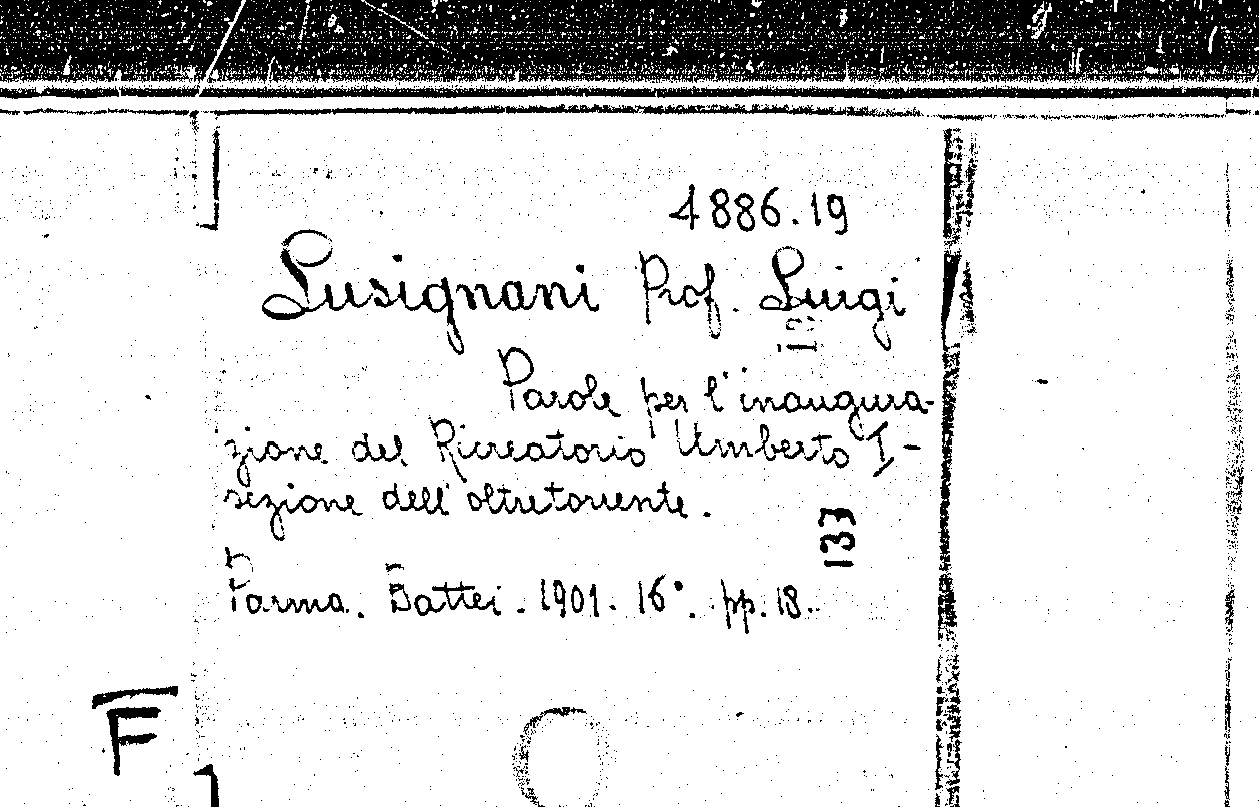 4886.19
Lusignani Prof. Luigi
Parole per l'inaugura-
zione del Ricreatorio Umberto I-
sezione dell'oltretorrente.
133
Parma. Battei. 1901. 16°. pp. 18..
F